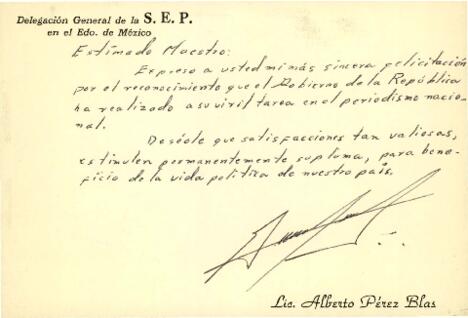 Delegación General de la S. E. P.
en el Edo. de México
Estimado Maestro:
Expreso a usted mi más sincera felicitación
por el reconocimiento que el Gobierno de la República
ha realizado a su viril tarea en el periodismo nacio-
nal.
Deséole que satisfacciones tan valiosas,
estimulen permanentemente su pluma, para bene-
ficio de la vida política de nuestro país.
Lic. Alberto Pérez Blas